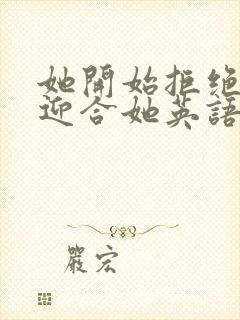 她開始拒絕
迎合她英語
嚴宏